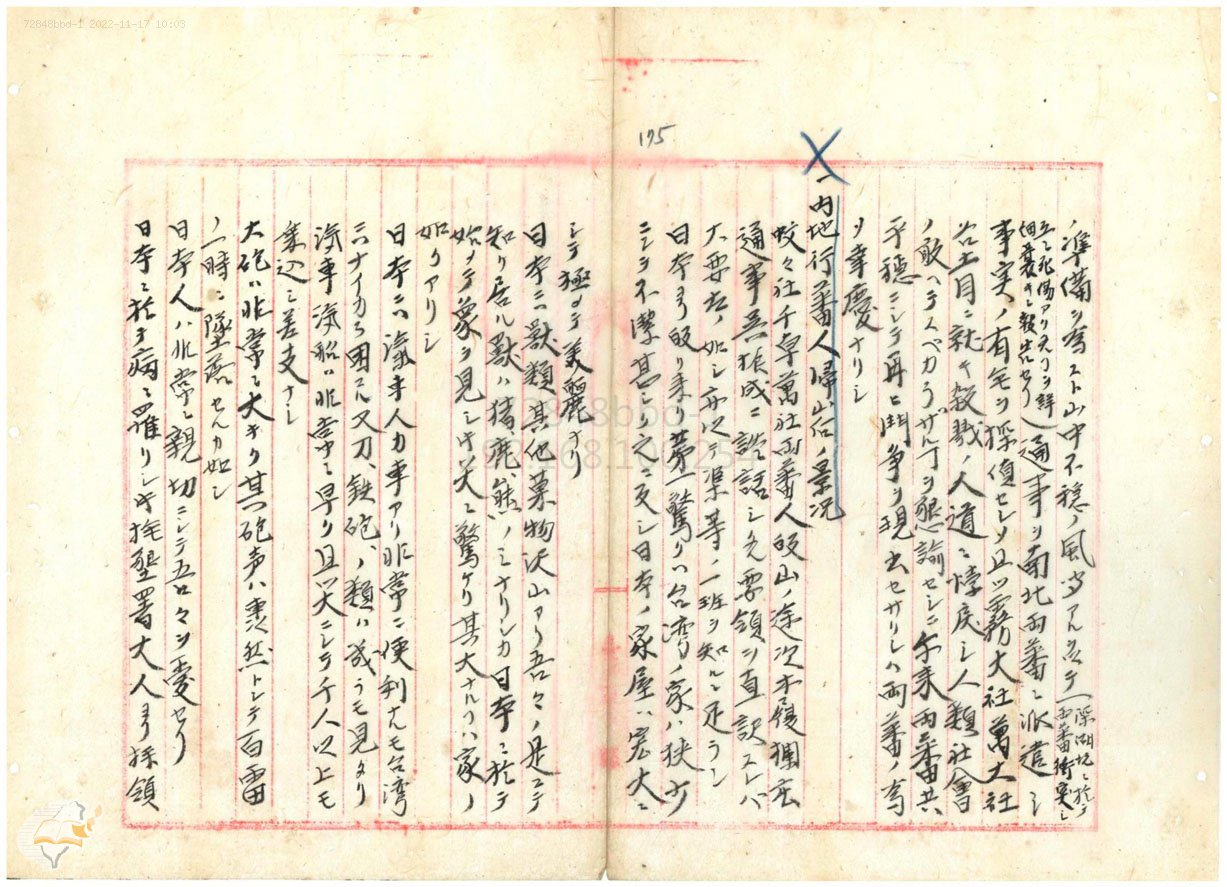 72848bbd-1 2022-11-17 10:03
175
ノ準備ヲ為スト山中不穏ノ風少アル
深湖坑ニ於テ
両蕃衝突シ
互ニ死傷アリ
通事ヲ南北両蕃ニ派遣シ
事実ノ有無ヲ探偵セシメ且ツ霧大社萬大社
ニ就キ殺戮ノ人道ニ悖戻シ人類社會
ノ敢ヘテスベカラザルヿヲ懇諭セシニ尓来両蕃共
平穏ニシテ再ヒ闘争ヲ現出セサリシハ両蕃ノ為
ヲ幸慶ナリシ
一内地行蕃人帰山后ノ景况
蛟々社千卓萬社両蕃人皈山ノ途次
通事ニ談話シタル要領ヲ直訳スレバ
大要左ノ如シ亦以テ渠等ノ一班ヲ知ルニ足ラン
日本ヨリ皈リ来リ第一驚クハ台湾ノ家ハ狭少
ニシテ不潔甚シ之ニ反シ日本ノ家屋ハ宏大ニ
シテ極メテ美麗ナリ
日本ニハ獣類其他菓物沢山アリ吾々ノ是マテ
知リ居ル獣ハ猪、鹿、熊、ノミナリシカ日本ニ於テ
始メテ象ヲ見シ時大ニ驚ケリ其大ナルヿハ家ノ
如クアリシ
日本ニハ滊車人力車アリ非常ニ便利ナルモ台湾
ニハナイカラ困ル又刀、鉄砲、ノ類ハ幾ラモ見タリ
滊車滊船ハ非常ニ早ク且ツ大ニシテ千人以上モ
乗込ミ差支ナシ
大砲ハ非常ニ大キク其砲声ハ轟然トシテ百雷
ノ一時ニ墜落セルカ如シ
日本人ハ非常ニ親切ニシテ吾々ヲ愛セリ
日本ニ於テ病ニ罹リシ時撫墾署大人ヨリ採領
72848bbd-1